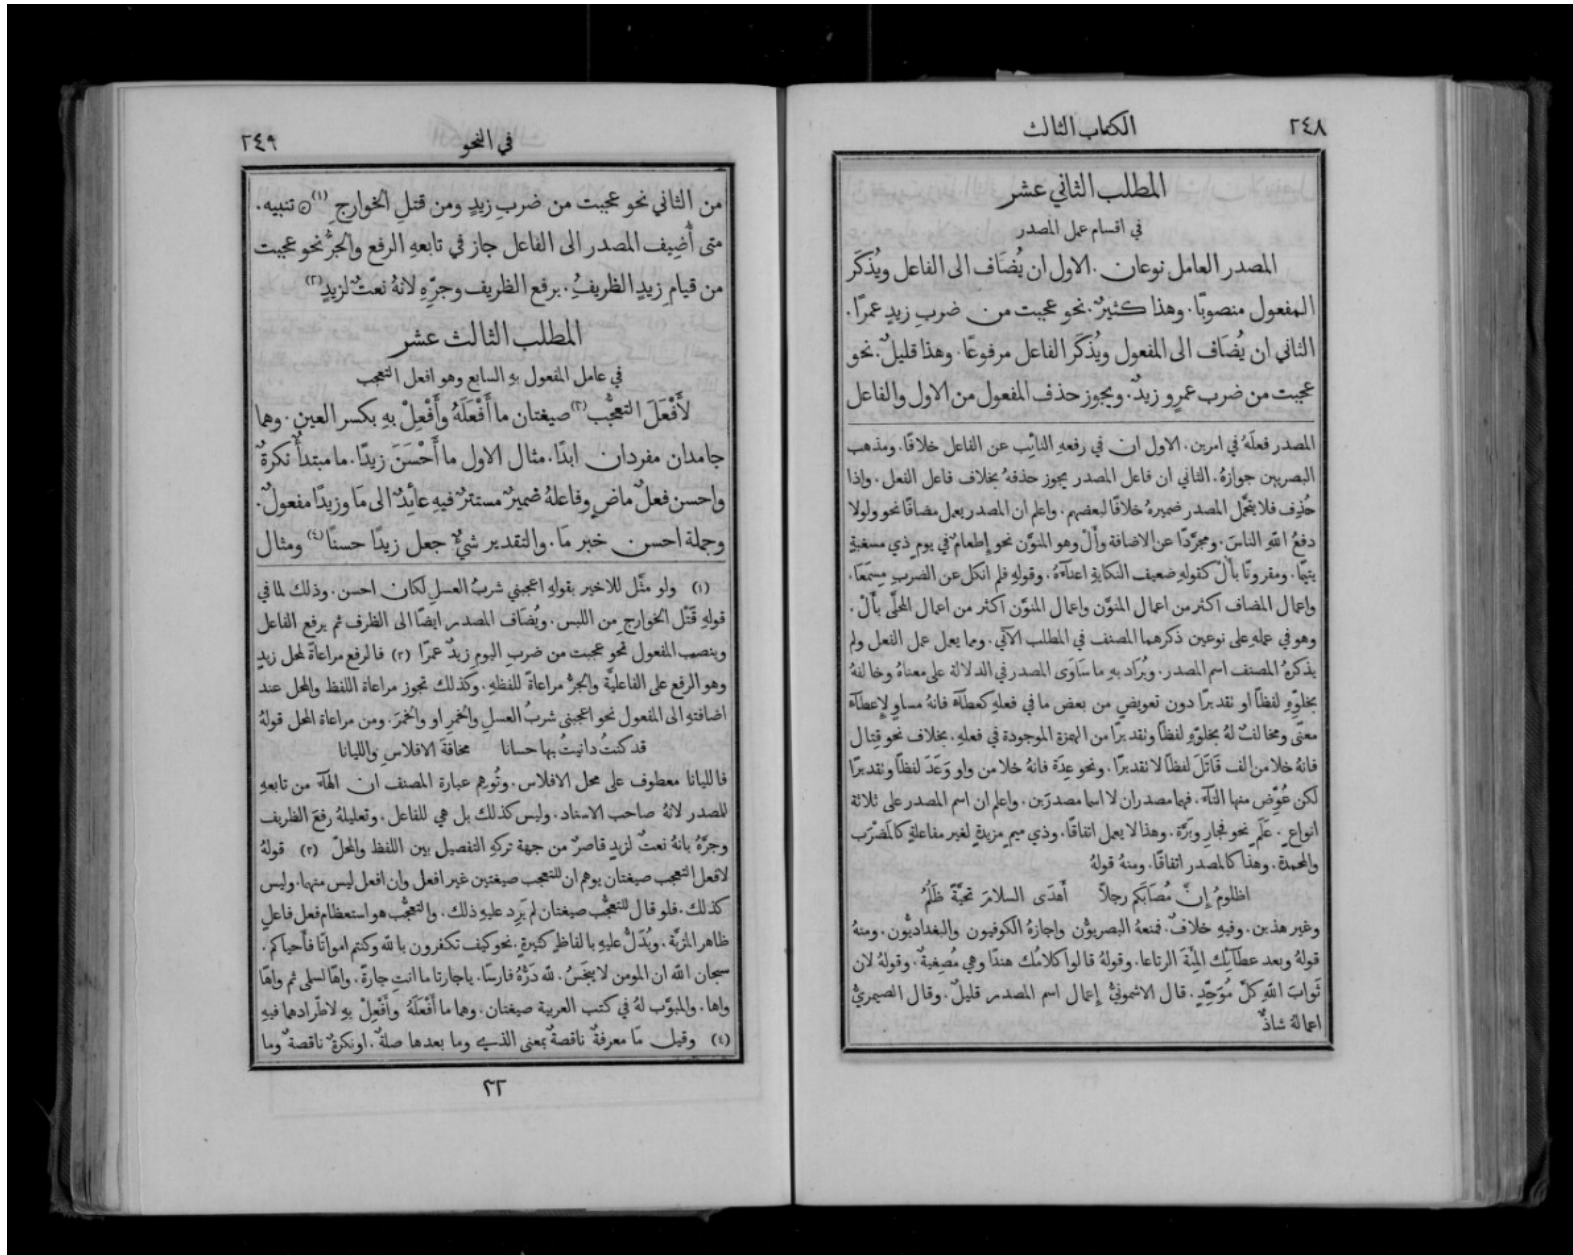 ٢٤٨
الكتاب الثالث
المطلب الثاني عشر
في اقسام عمل المصدر
المصدر العامل نوعان. الاول ان يُضَاف الى الفاعل ويُذكَر
المفعول منصوبًا. وهذا كثيرٌ. نحو عجبت من ضربِ زيدٍ عمرًا.
الثاني ان يُضَاف الى المفعول ويُذكَر الفاعل مرفوعًا. وهذا قليلٌ. نحو
عجبت من ضرب عمرٍو زيدٌ. ويجوز حذف المفعول من الاول والفاعل
المصدر فعلَهُ في امرين. الاول ان في رفعهِ النائب عن الفاعل خلافًا. ومذهب
البصريين جوازهُ. الثاني ان فاعل المصدر يجوز حذفهُ بخلاف فاعل الفعل. واذا
حُذِف فلا يتحمَّل المصدر ضميرهُ خلافًا لبعضهم. واعلم ان المصدر يعمل مضافًا نحو ولولا
دفعُ اللّٰهِ الناسَ. ومجرَّدًا عن الاضافة وأَلْ وهو المنوَّن نحو إطعامٌ في يومٍ ذي مسغبةٍ
يتيمًا. ومقرونًا بأَلْ كقولهِ ضعيف النكاية اعداءَهُ. وقولهِ فلم انكل عن الضربِ مِسمَعَا.
واعمال المضاف اكثر من اعمال المنوَّن واعمال المنوَّن اكثر من اعمال المحلَّى بأَلْ.
وهو في عملهِ على نوعين ذكرهما المصنف في المطلب الآتي. ومما يعمل عمل الفعل ولم
يذكرهُ المصنف اسم المصدر. ويُرَاد بهِ ما سَاوَى المصدر في الدلالة على معناهُ وخالفهُ
بخلوِّهِ لفظًا او تقديرًا دون تعويضٍ من بعض ما في فعلهِ كعطآء فانهُ مساوٍ لإعطآء
معنًى ومخالفٌ لهُ بخلوِّهِ لفظًا وتقديرًا من الهمزة الموجودة في فعلهِ. بخلاف نحو قِتال
فانهُ خلا من الف قَاتَلَ لفظًا لا تقديرًا. ونحو عِدَة فانهُ خلا من واو وَعَدَ لفظًا وتقديرًا
لكن عُوِّض منها التآء. فهما مصدران لا اسما مصدرَين. واعلم ان اسم المصدر على ثلاثة
انواعٍ. عَلَمٍ نحو فجارِ وبَرَّة. وهذا لا يعمل اتفاقًا. وذي ميمٍ مزيدةٍ لغير مفاعلةٍ كالمَضْرَب
والمحمدة. وهذا كالمصدر اتفاقًا. ومنهُ قولهُ
اظلومُ إنَّ مُصَابَكم رجلًا أَهدَى السلامَ تحيَّةً ظُلْمُ
وغير هذين. وفيهِ خلافٌ. فمنعهُ البصريُّون واجازهُ الكوفيون والبغداديُّون. ومنهُ
قولهُ وبعد عطآئِك المِئَةَ الرتاعا. وقولهُ قالوا كلامُك هندًا وهي مُصغِيةٌ. وقولهُ لان
ثَوابَ اللّٰهِ كلَّ مُوَحِّدٍ. قال الاشمونيُّ إعمال اسم المصدر قليلٌ. وقال الصيمريُّ
اعمالهُ شاذٌّ
في النحو
٢٤٩
من الثاني نحو عجبت من ضربِ زيدٍ ومن قتلِ الخوارجِ (١) ۞ تنبيه.
متى أُضِيف المصدر الى الفاعل جاز في تابعهِ الرفع والجرُّ نحو عجبت
من قيامِ زيدٍ الظريفُ. برفع الظريف وجرِّهِ لانهُ نعتٌ لزيدٍ (٢)
المطلب الثالث عشر
في عامل المفعول بهِ السابع وهو افعل التعجب
لأَفْعَلَ التعجُّب (٣) صيغتان ما أَفْعَلَهُ وأَفْعِلْ بهِ بكسر العين. وهما
جامدان مفردان ابدًا. مثال الاول ما أَحْسَنَ زيدًا. ما مبتدأٌ نكرةٌ
واحسن فعلٌ ماضٍ وفاعلهُ ضميرٌ مستترٌ فيهِ عائِدٌ الى مَا وزيدًا مفعولٌ.
وجملة احسن خبر مَا. والتقدير شيءٌ جعل زيدًا حسنًا (٤) ومثال
(١) ولو مثَّل للاخير بقولهِ اعجبني شربُ العسلِ لكان احسن. وذلك لما في
قولهِ قَتْل الخوارجِ من اللبس. ويُضَاف المصدر ايضًا الى الظرف ثم يرفع الفاعل
وينصب المفعول نحو عجبت من ضربِ اليومِ زيدٌ عمرًا (٢) فالرفع مراعاةً لمحل زيدٍ
وهو الرفع على الفاعليَّة والجرُّ مراعاةً للفظهِ. وكذلك تجوز مراعاة اللفظ والمحل عند
اضافتهِ الى المفعول نحو اعجبني شربُ العسلِ والخمرِ او والخمرَ. ومن مراعاة المحل قولهُ
قد كنتُ دانيتُ بها حسانا مخافةَ الافلاسِ والليانا
فالليانا معطوف على محل الافلاس. وتُوهِم عبارة المصنف ان الهآء من تابعهِ
للمصدر لانهُ صاحب الاسناد. وليس كذلك بل هي للفاعل. وتعليلهُ رفعَ الظريف
وجرَّهُ بانهُ نعتٌ لزيدٍ قاصرٌ من جهة تركهِ التفصيل بين اللفظ والمحلّ (٣) قولهُ
لافعل التعجب صيغتان يوهم ان للتعجب صيغتين غير افعل وان افعل ليس منهما. وليس
كذلك. فلو قال للتعجُّب صيغتان لم يَرِد عليهِ ذلك. والتعجُّب هو استعظام فعل فاعلٍ
ظاهر المزيَّة. ويُدَلُّ عليهِ بالفاظٍ كثيرةٍ. نحو كيف تكفرون باللّٰه وكنتم امواتًا فأَحياكم.
سبحان اللّٰه ان المومن لا ينجَسُ. للّٰه دَرُّهُ فارسًا. ياجارتا ما انتِ جارةً. واهًا لسلمى ثم واهًا
واها. والمبوَّب لهُ في كتب العربية صيغتان. وهما ما أَفْعَلَهُ وأَفْعِلْ بهِ لاطِّرادهما فيهِ
(٤) وقيل مَا معرفةٌ ناقصةٌ بمعنى الذي وما بعدها صلةٌ. او نكرةٌ ناقصةٌ وما
٣٢